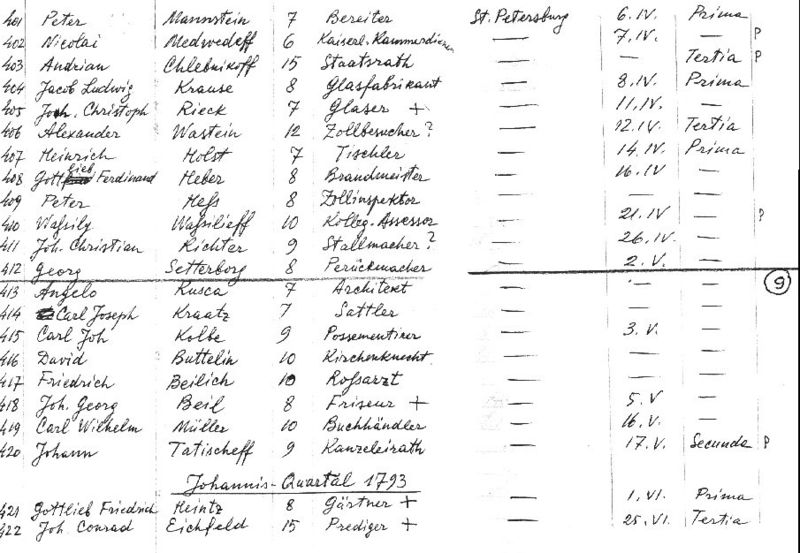 401 Peter Mannstein 7 Bereiter St. Petersburg 6. IV. Prima
402 Nicolai Medwedeff 6 Kaiserl. Kammerdiener — 7. IV. — P
403 Andrian Chlebnikoff 15 Staatsrath — — Tertia P
404 Jacob Ludwig Krause 8 Glasfabrikant — 8. IV. Prima
405 Joh. Christoph Rieck 7 Glaser + — 11. IV. —
406 Alexander Wastein 12 Zollbesucher ? — 12. IV. Tertia
407 Heinrich Holst 7 Tischler — 14. IV. Prima
408 Gottlieb Ferdinand Heber 8 Brandmeister — 16. IV —
409 Peter Heſs 8 Zollinspektor — — —
410 Waſsily Waſsilieff 10 Kolleg. Assessor — 21. IV — P
411 Joh. Christian Richter 9 Stallmacher ? — 26. IV. —
412 Georg Setterborg 8 Perückmacher — 2. V. —
413 Angelo Rusca 7 Architekt — — — 9
414 Carl Joseph Kraatz 7 Sattler — — —
415 Carl Joh Kolbe 9 Possementirer — 3. V. —
416 David Buttelin 10 Kirchenknecht — — —
417 Friedrich Beilich 10 Roſsarzt — — —
418 Joh. Georg Beil 8 Friseur + — 5. V —
419 Carl Wilhelm Müller 10 Buchhändler — 16. V. —
420 Johann Tatischeff 9 Kanzeleirath — 17. V. Secunda P
Johannis-Quartal 1793
421 Gottlieb Friedrich Heintz 8 Gärtner + — 1. VI. Prima
422 Joh. Conrad Eichfeld 15 Prediger + — 25. VI. Tertia